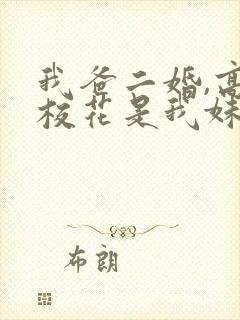 我爸二婚,高
校花是我妹
布朗